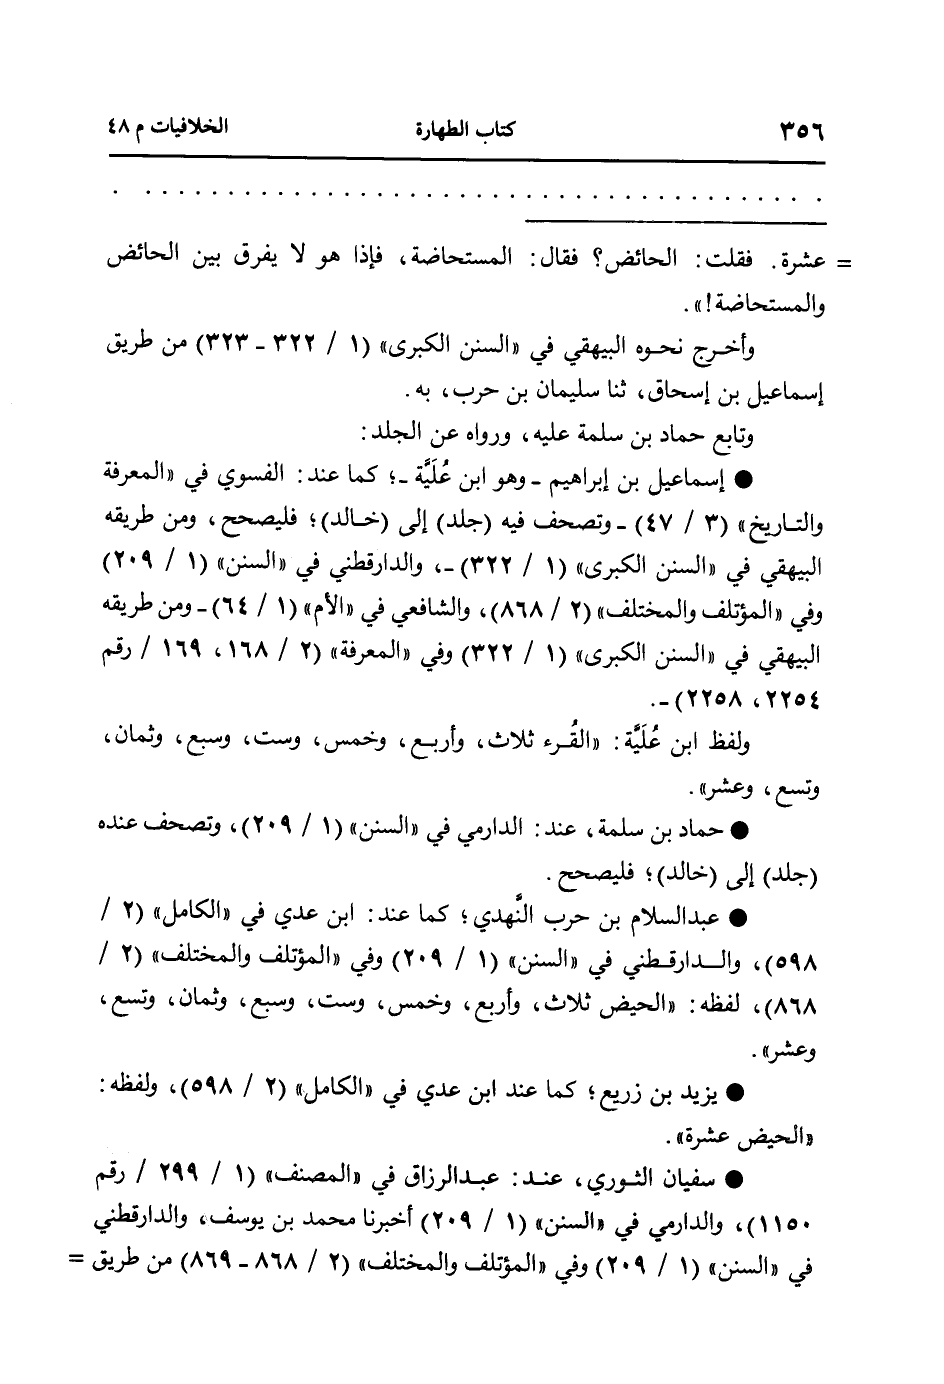 ٣٥٦ كتاب الطهارة الخلافيات م ٤٨
. . . . . . . . . . . . . . . . . . . . . . . . . . . . . . . . . . . . . .
= عشرة. فقلت: الحائض؟ فقال: المستحاضة، فإذا هو لا يفرق بين الحائض
والمستحاضة!».
وأخرج نحوه البيهقي في «السنن الكبرى» (١ / ٣٢٢ ـ ٣٢٣) من طريق
إسماعيل بن إسحاق، ثنا سليمان بن حرب، به.
وتابع حماد بن سلمة عليه، ورواه عن الجلد:
● إسماعيل بن إبراهيم ـ وهو ابن عُلَيَّة ـ؛ كما عند: الفسوي في «المعرفة
والتاريخ» (٣ / ٤٧) ـ وتصحف فيه (جلد) إلى (خالد)؛ فليصحح، ومن طريقه
البيهقي في «السنن الكبرى» (١ / ٣٢٢) ـ، والدارقطني في «السنن» (١ / ٢٠٩)
وفي «المؤتلف والمختلف» (٢ / ٨٦٨)، والشافعي في «الأم» (١ / ٦٤) ـ ومن طريقه
البيهقي في «السنن الكبرى» (١ / ٣٢٢) وفي «المعرفة» (٢ / ١٦٨، ١٦٩ / رقم
٢٢٥٤، ٢٢٥٨) ـ.
ولفظ ابن عُلَيَّة: «القُرء ثلاث، وأربع، وخمس، وست، وسبع، وثمان،
وتسع، وعشر».
● حماد بن سلمة، عند: الدارمي في «السنن» (١ / ٢٠٩)، وتصحف عنده
(جلد) إلى (خالد)؛ فليصحح.
● عبدالسلام بن حرب النَّهدي؛ كما عند: ابن عدي في «الكامل» (٢ /
٥٩٨)، والدارقطني في «السنن» (١ / ٢٠٩) وفي «المؤتلف والمختلف» (٢ /
٨٦٨)، لفظه: «الحيض ثلاث، وأربع، وخمس، وست، وسبع، وثمان، وتسع،
وعشر».
● يزيد بن زريع؛ كما عند ابن عدي في «الكامل» (٢ / ٥٩٨)، ولفظه:
«الحيض عشرة».
● سفيان الثوري، عند: عبدالرزاق في «المصنف» (١ / ٢٩٩ / رقم
١١٥٠)، والدارمي في «السنن» (١ / ٢٠٩) أخبرنا محمد بن يوسف، والدارقطني
في «السنن» (١ / ٢٠٩) وفي «المؤتلف والمختلف» (٢ / ٨٦٨ ـ ٨٦٩) من طريق =